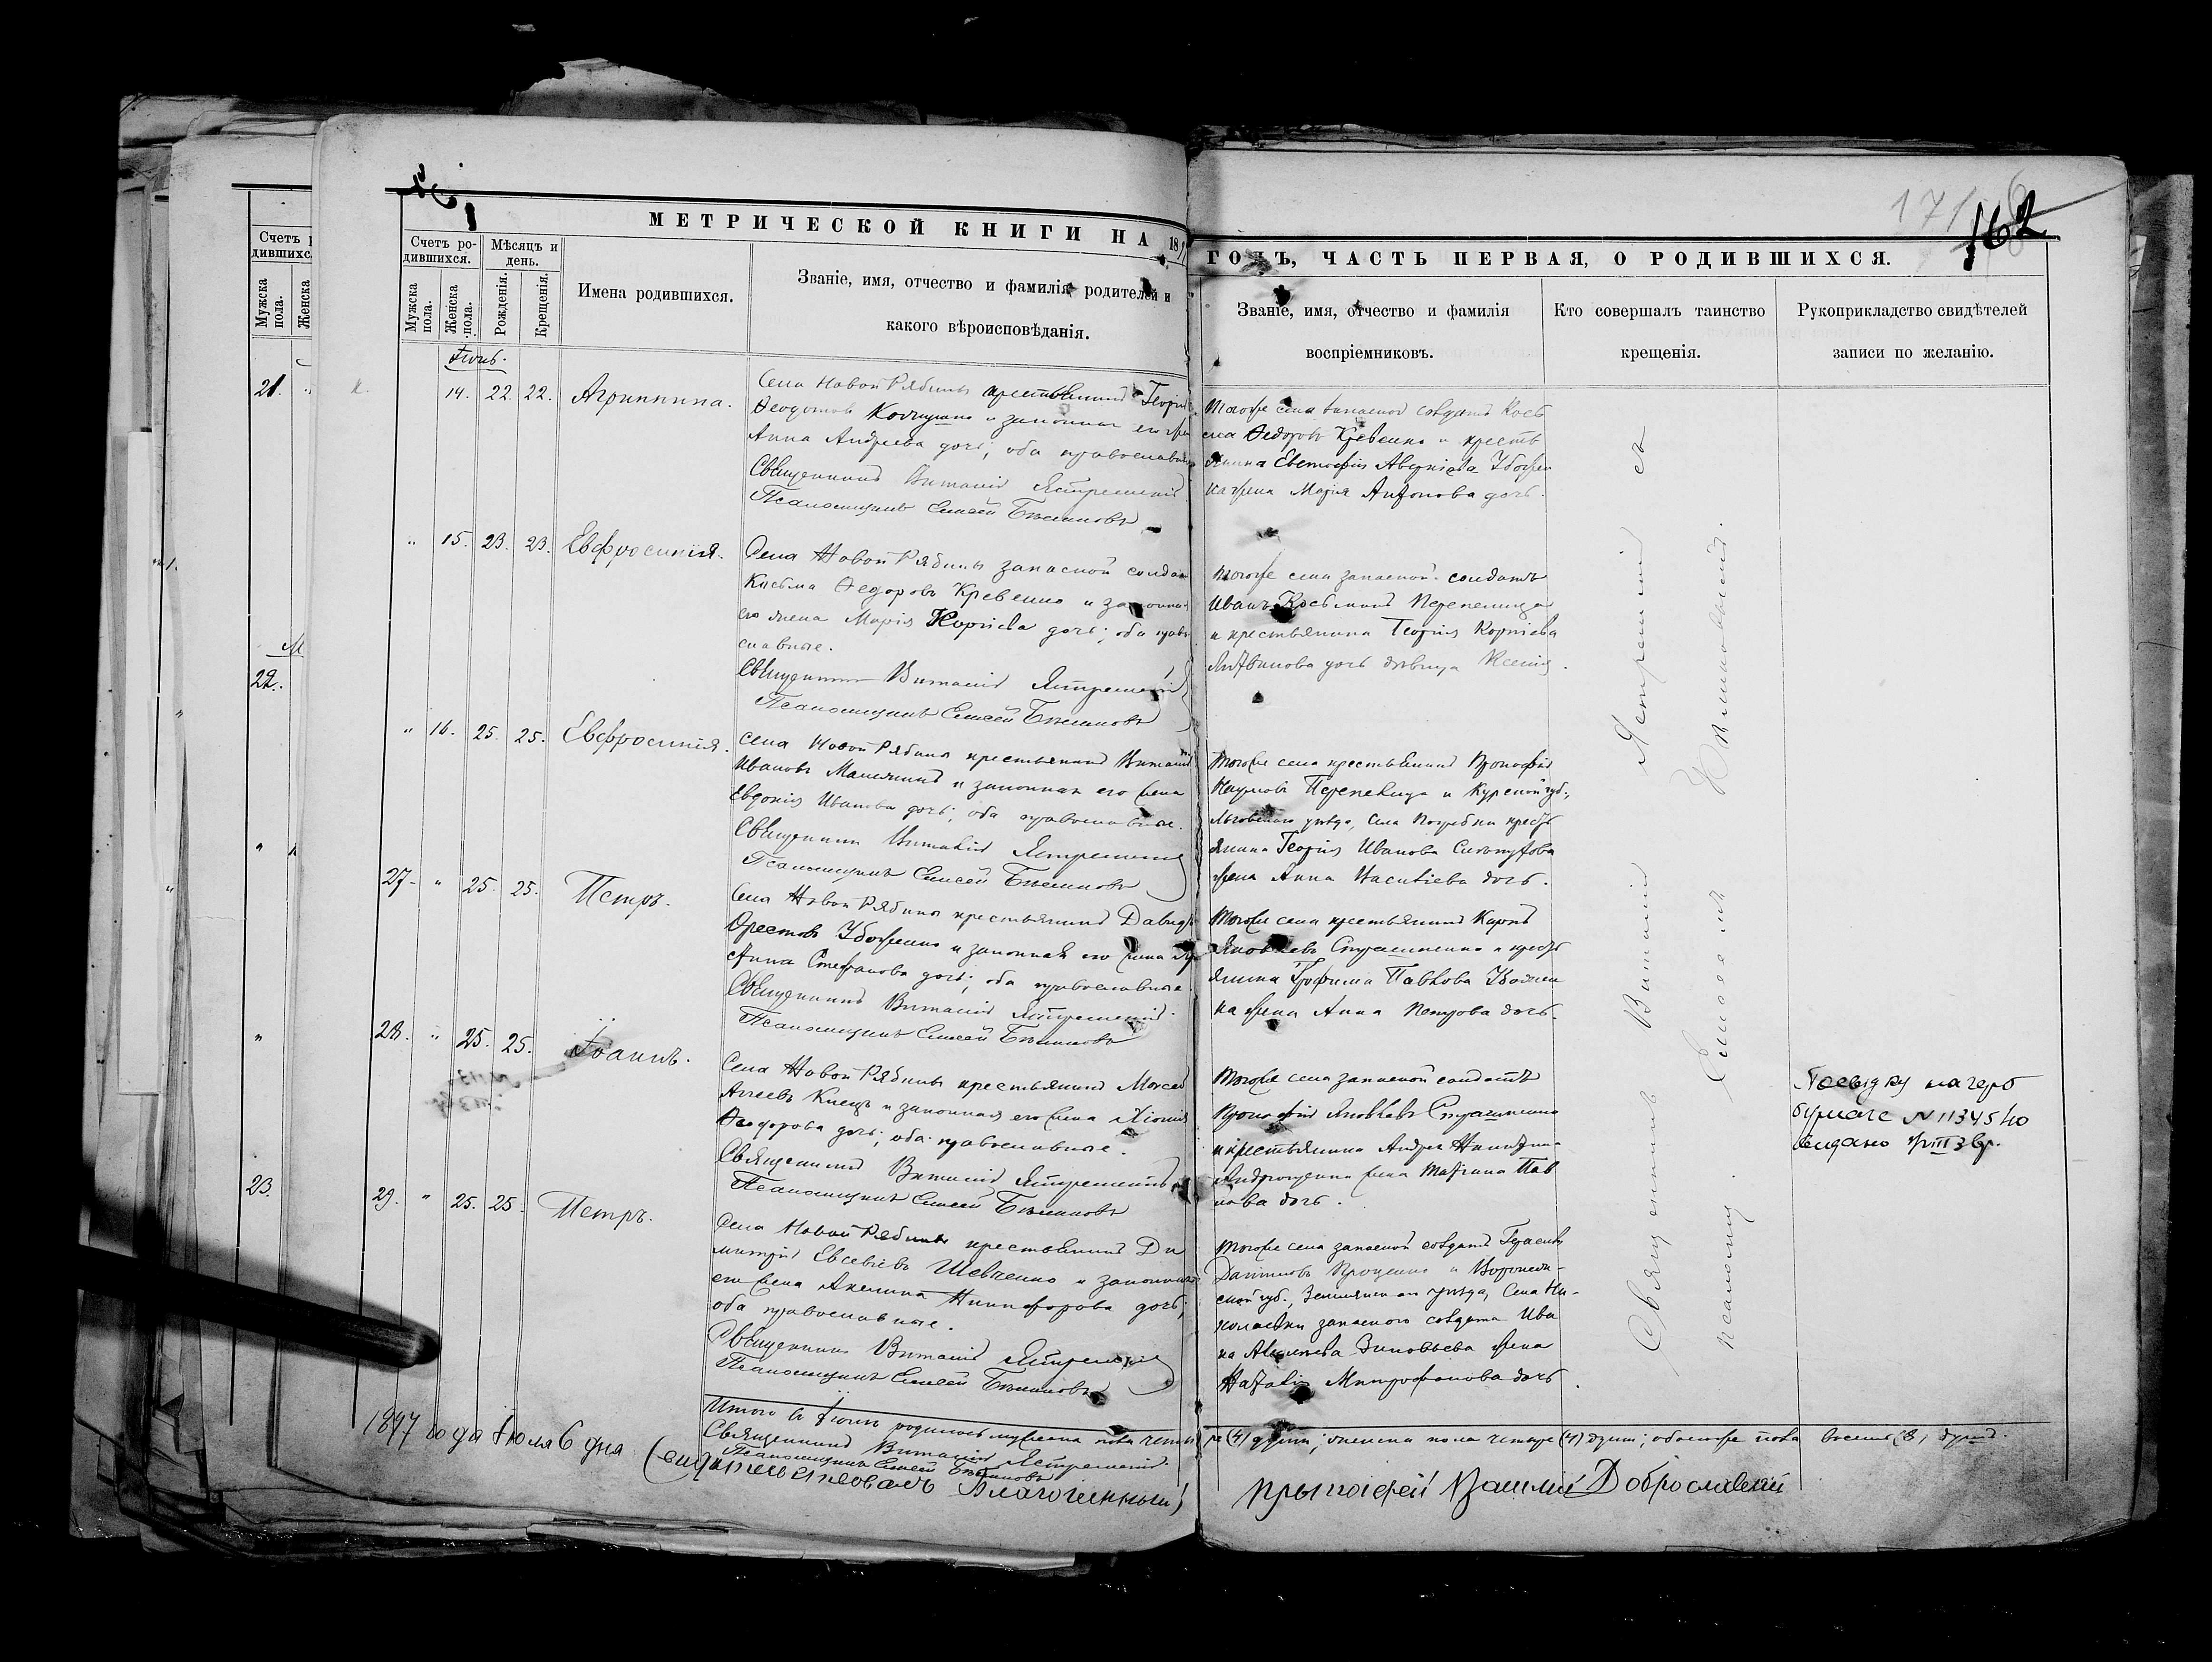 171
162
МЕТРИЧЕСКОЙ КНИГИ НА 189
ГОДЪ, ЧАСТЬ ПЕРВАЯ, О РОДИВШИХСЯ.
Счетъ ро-
дившихся.
Мѣсяцъ и
день.
Мужска
пола.
Женска
пола.
Рожденія.
Крещенія.
Имена родившихся.
Званіе, имя, отчество и фамилія родителей и
какого вѣроисповѣданія.
Званіе, имя, отчество и фамилія
воспріемниковъ.
Кто совершалъ таинство
крещенія.
Рукоприкладство свидѣтелей
записи по желанію.
Іюнь.
14. 22. 22. Агриппина.
Села Новой Рябины крестьянинъ Георгій
Феодотовъ и законная его
Анна Андреева дочь; оба православные
Священникъ Виталій Ястремскій
Псаломщикъ Елисей
Тогоже села запасной солдатъ Косьма
Федоровъ Кревенко и кресть
янина Евстафія
жена Марія Антонова дочь.
" 15. 23. 23. Евфросинія.
Села Новой Рябины запасной солдатъ
Косьма Федоровъ Кревенко и законная
его жена Марія Корніева дочь; оба право
славные.
Священникъ Виталій Ястремскій
Псаломщикъ Елисей
Тогоже села запасной солдатъ
Иванъ Косьминъ Перепелица
и крестьянина Георгія Корніева
Литвинова дочь дѣвица Ксенія.
" 16. 25. 25. Евфросинія.
Села Новой Рябины крестьянинъ Виталій
Ивановъ и законная его жена
Евдокія Иванова дочь; оба православные.
Священникъ Виталій Ястремскій
Псаломщикъ Елисей
Тогоже села крестьянинъ Прокофій
Наумовъ Перепелица и Курской губ.,
Льговскаго уѣзда, села Погребки кресть
янина Георгія Иванова
жена Анна Васильева дочь.
27. " 25. 25. Петръ.
Села Новой Рябины крестьянинъ Давидъ
Орестовъ Убоженко и законная его жена
Анна Стефанова дочь; оба православные.
Священникъ Виталій Ястремскій.
Псаломщикъ Елисей
Тогоже села крестьянинъ Карпъ
Яковлевъ Страшненко и кресть
янина Трофима Павлова
жена Анна Петрова дочь.
28. " 25. 25. Іоаннъ.
Села Новой Рябины крестьянинъ Моисей
и законная его жена Хіонія
Феодорова дочь; оба православные.
Священникъ Виталій Ястремскій
Псаломщикъ Елисей
Тогоже села запасной солдатъ
Прокофій Яковлевъ Страшненко
и крестьянина Андрея Никитина
Андрющенка жена Матрона Пав
лова дочь.
бумаге № 1134540
29. " 25. 25. Петръ.
Села Новой Рябины крестьянинъ Ди
митрій Евсевіевъ Шевченко и законная
его жена Акилина Никифорова дочь;
оба православные.
Священникъ Виталій Ястремскій
Псаломщикъ Елисей
Тогоже села запасной солдатъ Герасимъ
Даниловъ Проценко и Воронеж-
ской губ., Землянскаго уѣзда, села Ни-
колаевки запаснаго солдата Ива
на Зиновьева жена
Наталія Митрофанова дочь.
Священникъ Виталій Ястремскій съ
псаломщ. Елисеемъ
Итого въ Іюнѣ родилось мужеска пола четы
ре (4) души; женска пола четыре (4) души; обоего пола восемь (8) душъ.
Священникъ Виталій Ястремскій.
Псаломщикъ Елисей
1897 года Іюля 6 дня свидѣтельствовалъ Благочинный
Протоіерей Василій Доброславскій
Счетъ р
дившихс
Мужска
пола.
Женска
21.
М
22.
23.